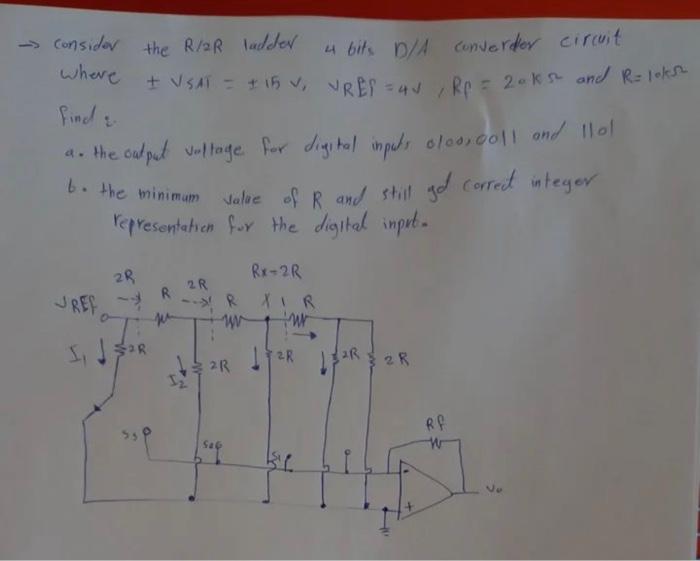 → consider the R/2R ladder 4 bits D/A converter circuit
where ± VSAT = ± 15 V, VREF = 4V, Rf = 20kΩ and R= 10kΩ
find :
a. the output voltage for digital inputs 0100, 0011 and 1101
b. the minimum value of R and still get correct integer
representation for the digital input.
2R 2R Rx=2R
VREF R R X R
I1 2R I2 2R 2R 2R 2R
Rf
S3 S2 S1
-
Vo
+